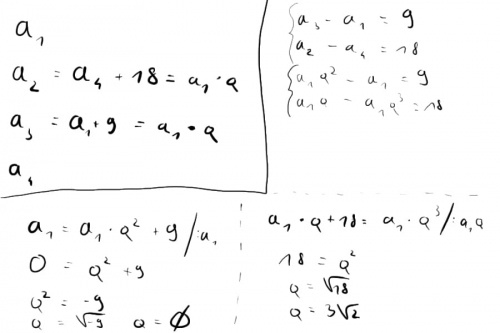 a₁
a₂ = a₄ + 18 = a₁ · q
a₃ = a₁ + 9 = a₁ · q
a₄
a₃ - a₁ = 9
a₂ - a₄ = 18
a₁q² - a₁ = 9
a₁q - a₁q³ = 18
a₁ = a₁ · q² + 9 /:a₁
0 = q² + 9
q² = -9
q = √-9 q = ∅
a₁ · q + 18 = a₁ · q³ /:a₁q
18 = q²
q = √18
q = 3√2